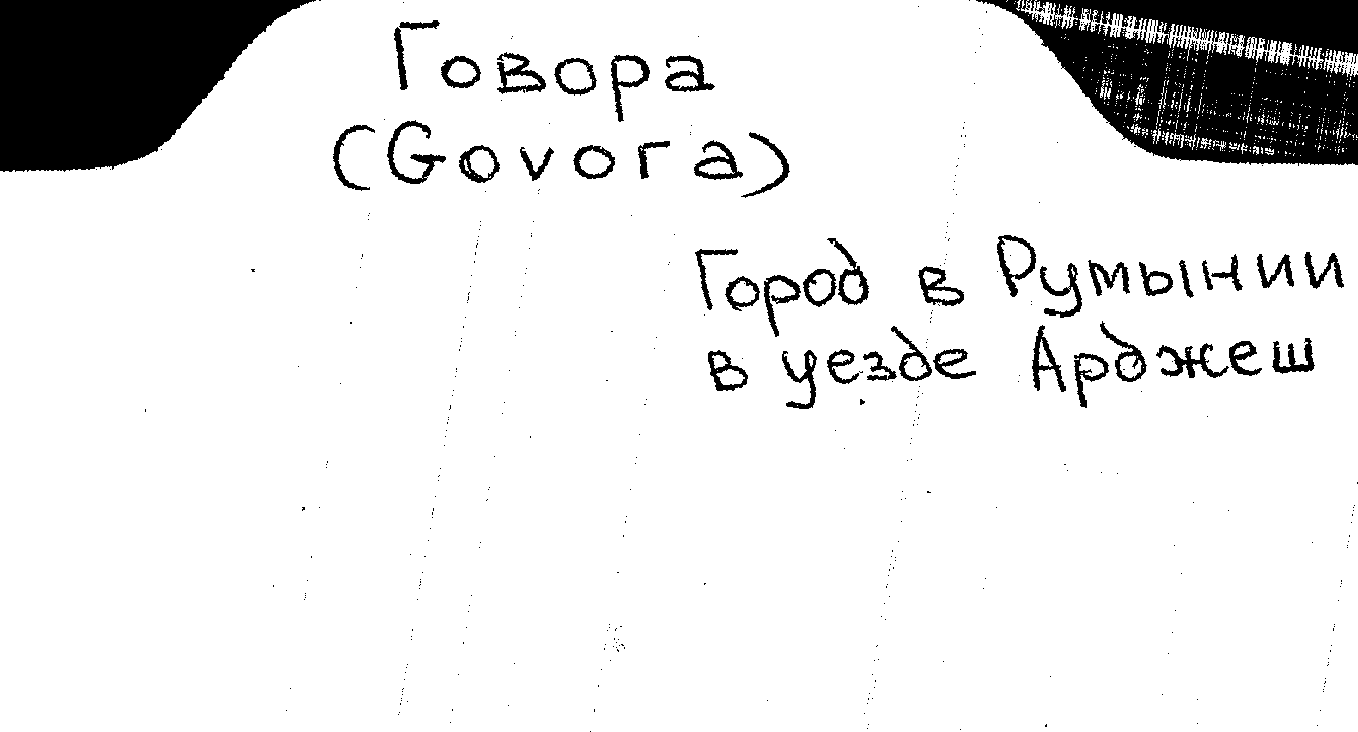 Говора
(Govora)
Город в Румынии
в уезде Арджеш